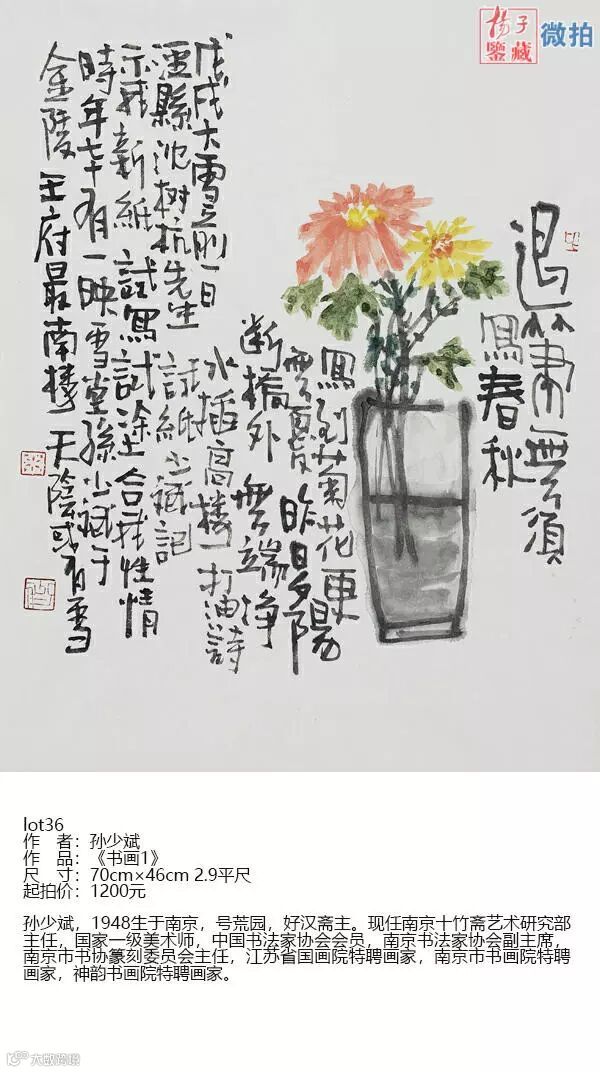 楊子
鑒藏
微拍
退筆無須
寫春秋
寫到菊花更
無憂昨日夕陽
斷橋外 無端淨
水插高樓一打油詩
戊戌大雪前一日
涇縣沈树杭先生 試紙少斌記
示我新紙試寫試塗合我性情
時年七十有一映雪堂孫少斌于
金陵王府最南樓天陰或有雪
lot36
作 者：孙少斌
作 品：《书画1》
尺 寸：70cm×46cm 2.9平尺
起拍价：1200元
孙少斌，1948生于南京，号荒园，好汉斋主。现任南京十竹斋艺术研究部
主任，国家一级美术师，中国书法家协会会员，南京书法家协会副主席，
南京市书协篆刻委员会主任，江苏省国画院特聘画家，南京市书画院特聘
画家，神韵书画院特聘画家。